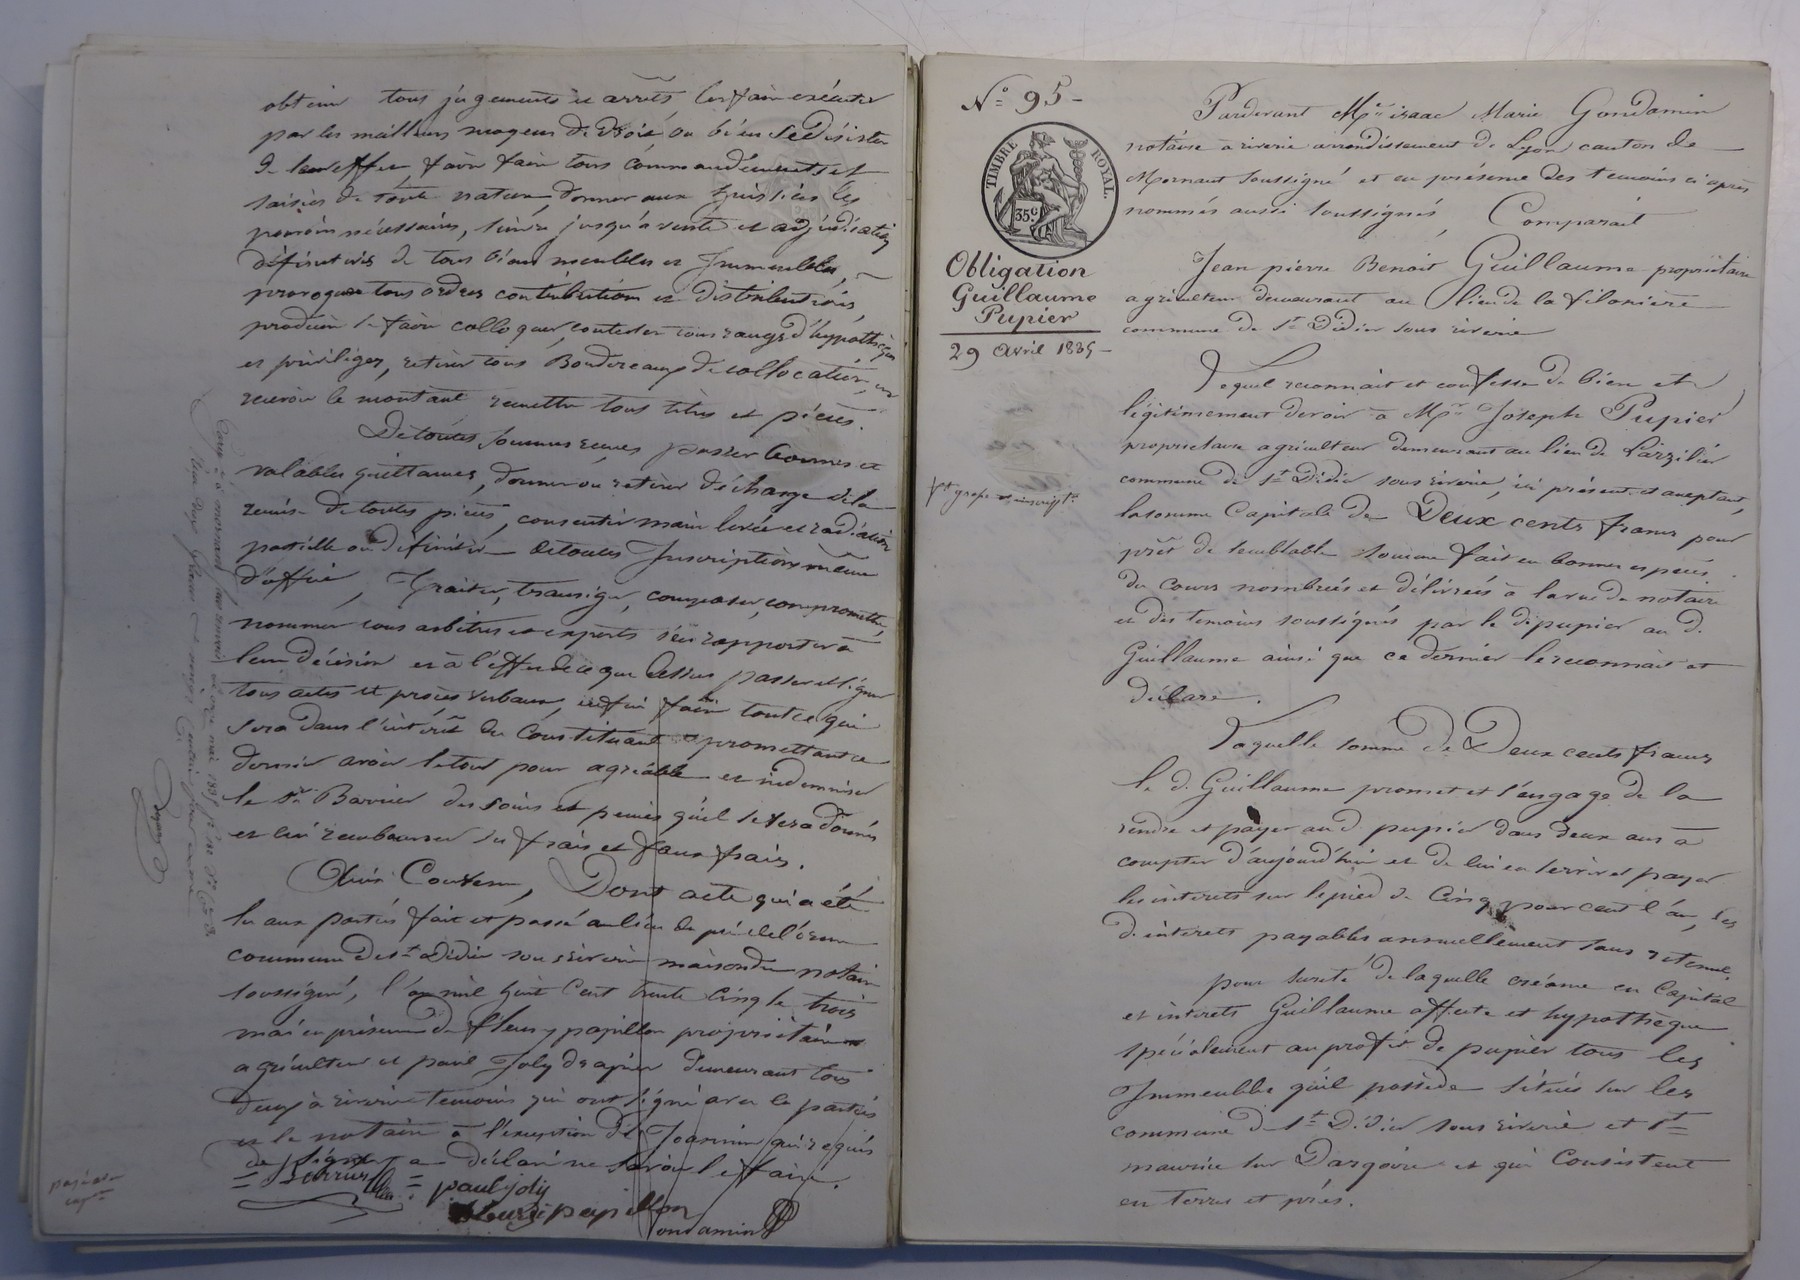 obtenir tous jugements et arrêts les faire exécuter
par les meilleurs moyens de droit ou bien se désister
de leur effet, faire faire tous commandements et
saisies de toute nature, donner aux huissiers les
pouvoirs nécessaires, suivre jusqu'à vente et adjudication
définitives de tous biens meubles et Immeubles,
provoquer tous ordres contributions et distributions
produire se faire colloquer, contester tous rangs d'hypothèques
et privilèges, retirer tous Bordereaux de collocation, en
recevoir le montant remettre tous titres et pièces.
De toutes sommes reçues passer bonnes et
valables quittances, donner ou retirer décharge de la
remise de toutes pièces, consentir main levée et radiation
partielle ou définitive de toutes Inscriptions même
d'office, Traiter, transiger, composer, compromettre,
nommer tous arbitres et experts s'en rapporter à
leur décision et à l'effet de ce que dessus passer et signer
tous actes et procès verbaux, enfin faire tout ce qui
sera dans l'intérêt du Constituant promettant ce
dernier avoir le tout pour agréable et indemniser
le Sr. Barrier des soins et peines qu'il se sera donnés
et lui rembourser ses frais et faux frais.
Ainsi Convenu, Dont acte qui a été
lu aux parties fait et passé au lieu de
commune de St. Didier sous riverie maison du notaire
soussigné, l'an mil huit Cent trente Cinq le trois
mai en présence de fleury papillon propriétaire
agriculteur et paul Joly drapier demeurant tous
deux à riverie témoins qui ont signé avec les parties
et le notaire à l'exception de Joannin qui requis
de signer a déclaré ne savoir le faire.
paul joly
fleury papillon
Gondamin
N° 95-
TIMBRE ROYAL.
35 c.
Obligation
Guillaume
Pupier
29 Avril 1835-
Pt grosse et inscript.
Pardevant Me. isaac Marie Gondamin
notaire à riverie arrondissement de Lyon canton de
Mornant soussigné et en présence des temoins ci après
nommés aussi soussignés, Comparait
Jean pierre Benoit Guillaume propriétaire
agriculteur demeurant au lieu de la filonière
commune de St. Didier sous riverie
Lequel reconnait et confesse de bien et
légitimement devoir à Mr. Joseph Pupier
propriétaire agriculteur demeurant au lieu de Larzilier
commune de St. Didier sous riverie, ici présent et acceptant,
la somme Capitale de Deux cents francs pour
prêt de semblable somme fait en bonnes espèces
du cours nombrées et délivrées à la vue du notaire
et des temoins soussignés par le d. pupier au d.
Guillaume ainsi que ce dernier le reconnait et
déclare.
Laquelle somme de Deux cents francs
le d. Guillaume promet et s'engage de la
rendre et payer au d. pupier dans deux ans à
compter d'aujourd'hui et de lui en servir et payer
les interets sur le pied de Cinq pour cent l'an, les
d. interets payables annuellement sans retenue.
pour sureté de laquelle créance en Capital
et interets Guillaume affecte et hypothèque
spécialement au profit de pupier tous les
Immeubles qu'il possède situés sur les
commune de St. Didier sous riverie et St.
maurice sur Dargoire et qui Consistent
en terres et prés.